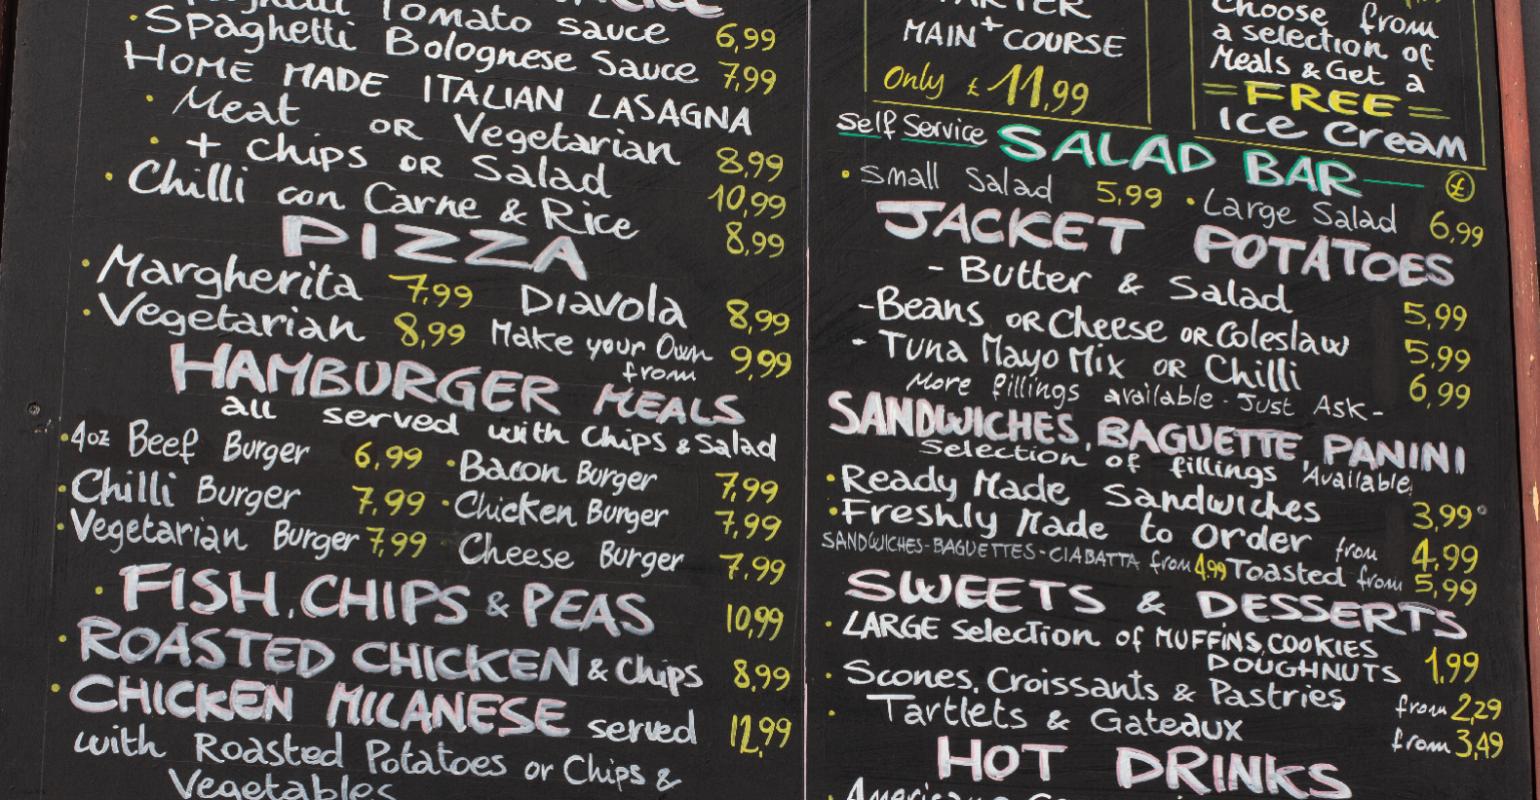 Tomato sauce 6,99
· Spaghetti Bolognese Sauce 7,99
HOME MADE ITALIAN LASAGNA
· Meat OR Vegetarian 8,99
· + chips OR Salad 10,99
· Chilli con Carne & Rice 8,99
PIZZA
· Margherita 7,99 Diavola 8,99
· Vegetarian 8,99 Make your Own from 9,99
HAMBURGER MEALS
all served with Chips & Salad
· 4oz Beef Burger 6,99 · Bacon Burger 7,99
· Chilli Burger 7,99 · Chicken Burger 7,99
· Vegetarian Burger 7,99 Cheese Burger 7,99
· FISH, CHIPS & PEAS 10,99
· ROASTED CHICKEN & Chips 8,99
· CHICKEN MILANESE served 12,99
with Roasted Potatoes or Chips &
Vegetables
MAIN + COURSE
Only £ 11,99
Choose from
a selection of
Meals & Get a
= FREE =
Ice Cream
Self Service SALAD BAR £
· Small Salad 5,99 · Large Salad 6,99
JACKET POTATOES
- Butter & Salad 5,99
- Beans OR Cheese OR Coleslaw 5,99
- Tuna Mayo Mix OR Chilli 6,99
More fillings available - Just Ask -
SANDWICHES, BAGUETTE PANINI
Selection of fillings Available
· Ready Made Sandwiches 3,99
· Freshly Made to Order from 4,99
SANDWICHES-BAGUETTES-CIABATTA from 4,99 Toasted from 5,99
SWEETS & DESSERTS
· LARGE Selection of MUFFINS, COOKIES
DOUGHNUTS 1,99
· Scones, Croissants & Pastries from 2,29
· Tartlets & Gateaux from 3,49
HOT DRINKS